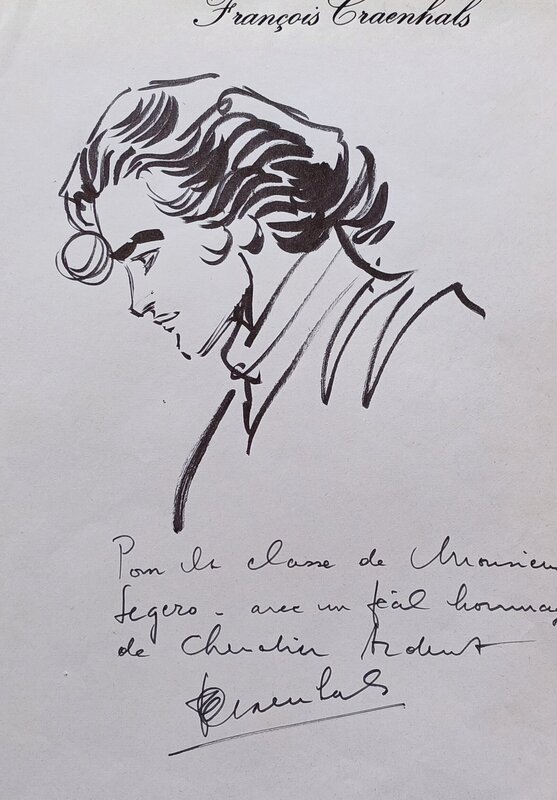 François Craenhals
Pour la classe de Monsieur
Segero - avec un féal hommag
de Chevalier Ardent
Craenhals